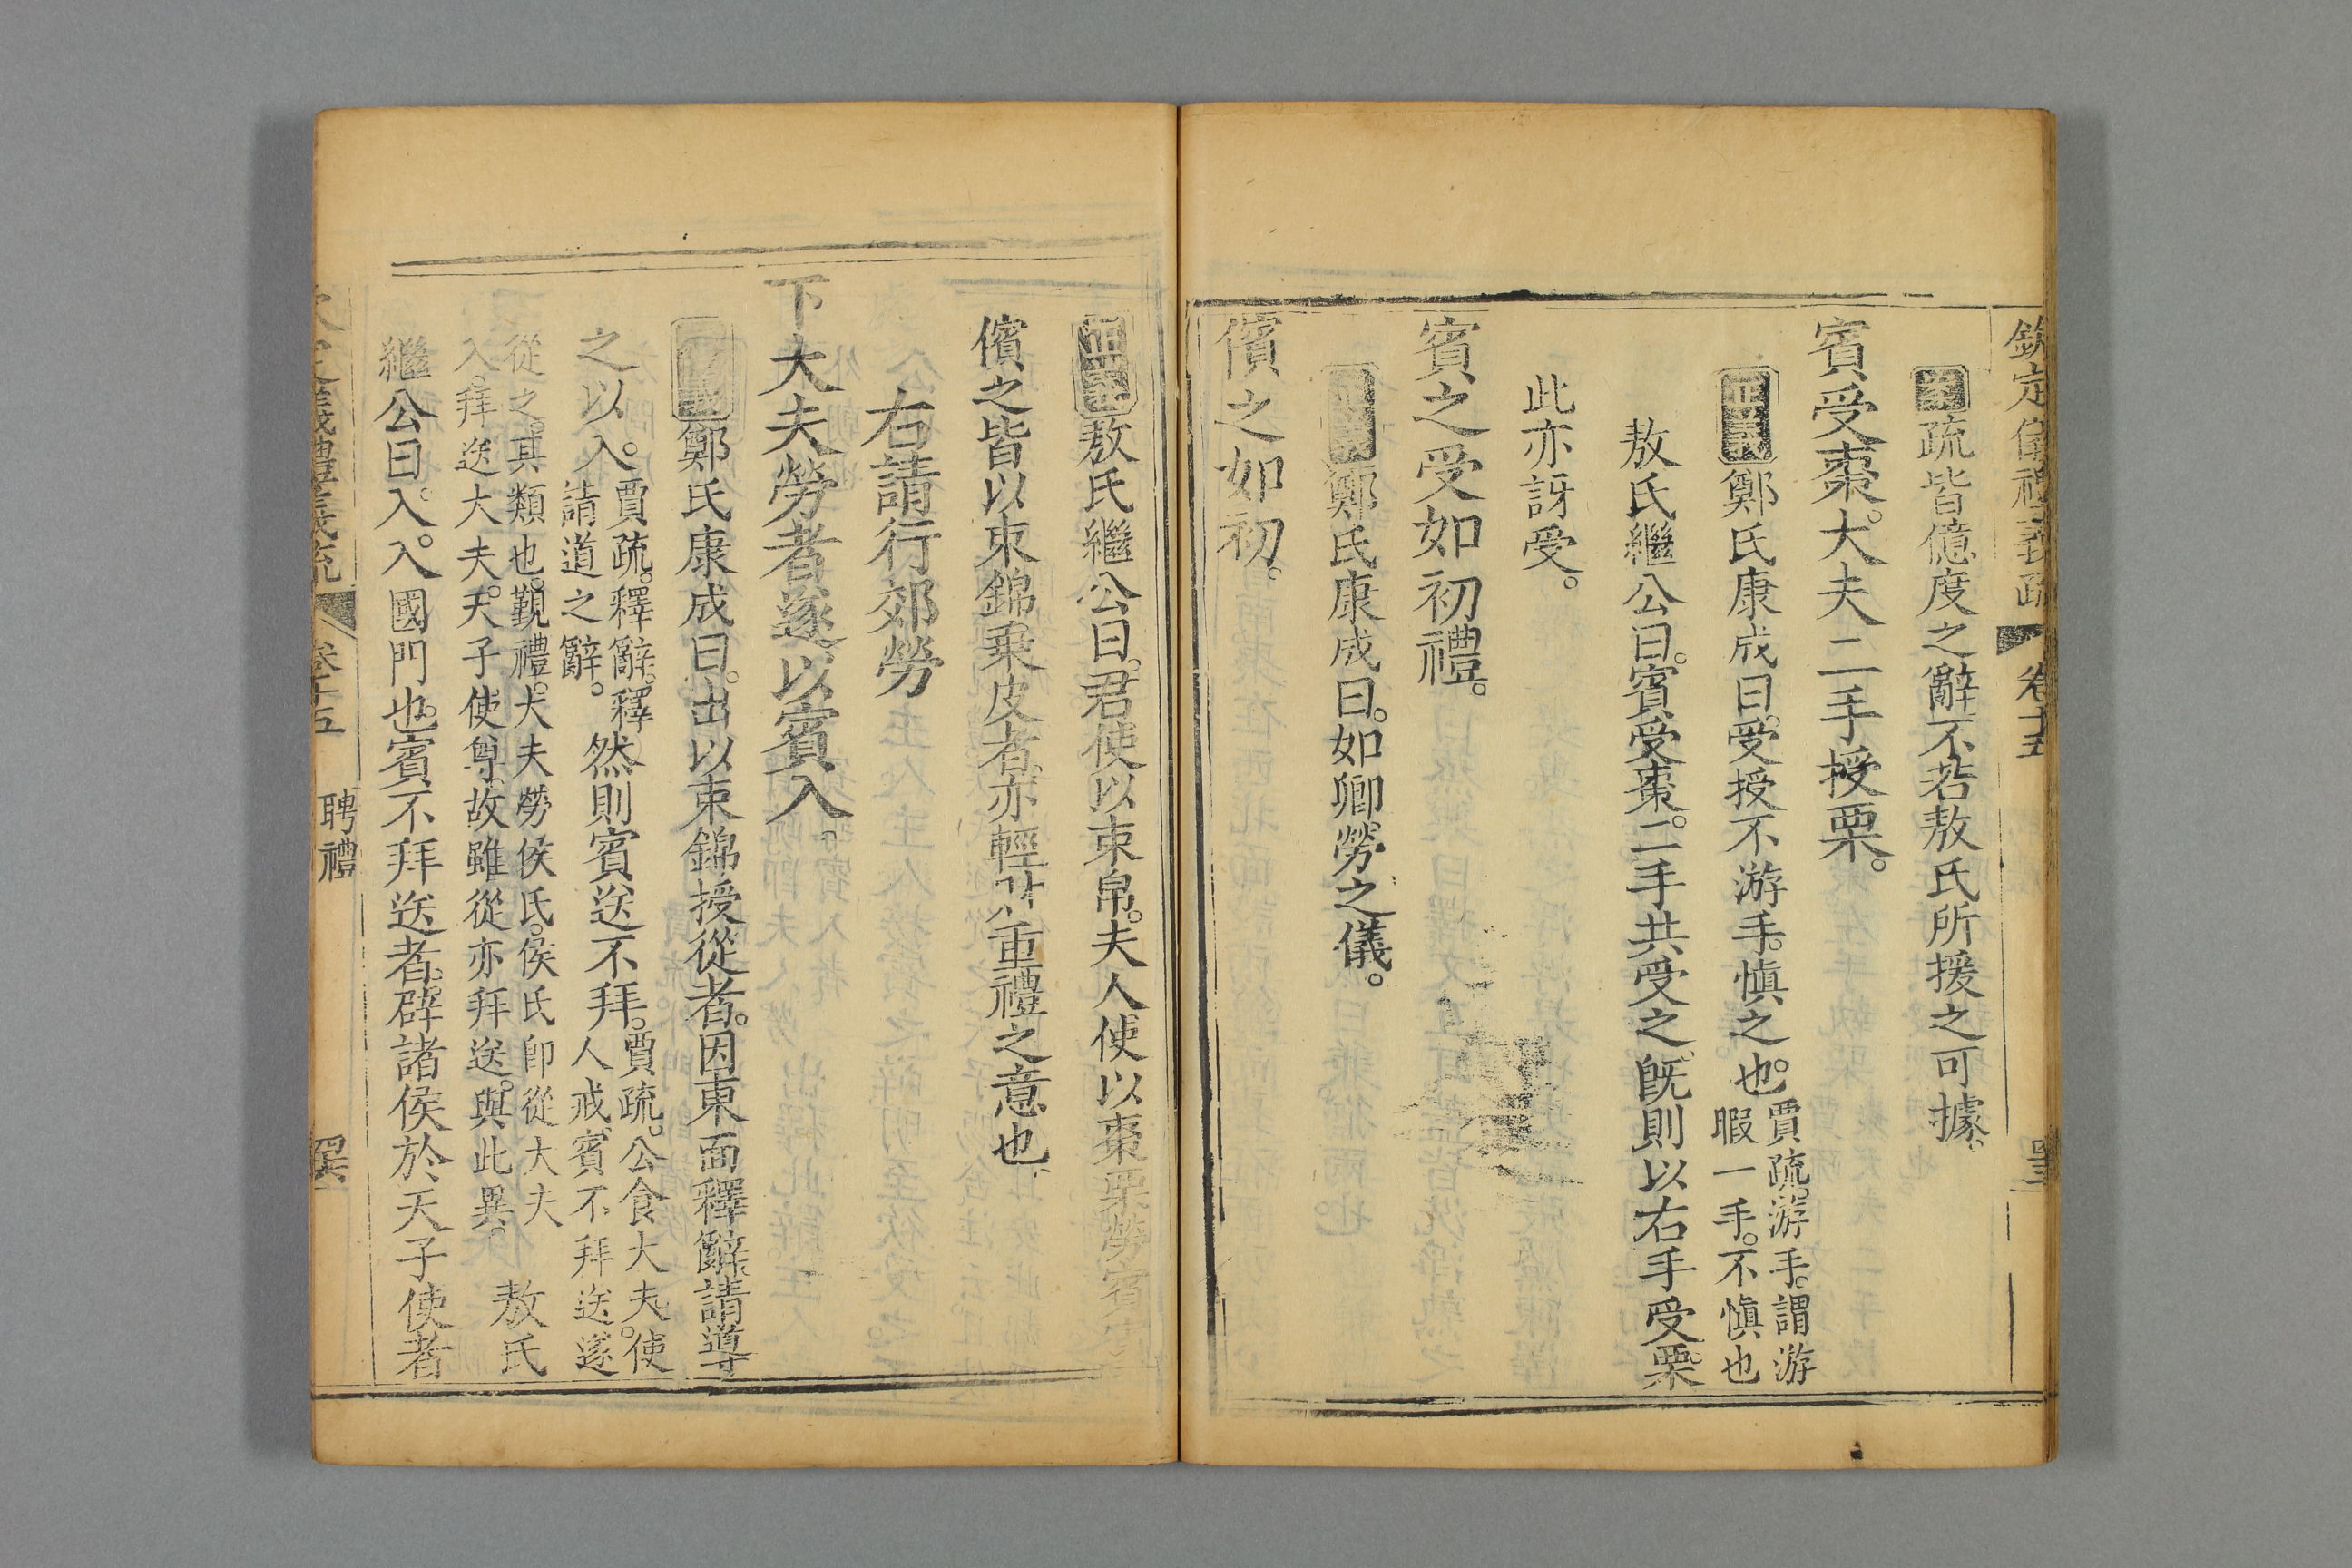 欽定儀禮義疏 卷十五
疏皆億度之辭不若敖氏所援之可據
賓受棗。大夫二手授栗。
正義鄭氏康成曰。受授不游手。慎之也。賈疏。游手。謂游暇一手。不慎也
敖氏繼公曰。賓受棗。二手共受之。旣則以右手受栗。
此亦訝受。
賓之受如初禮。
正義鄭氏康成曰。如卿勞之儀。
儐之如初。
正義敖氏繼公曰。君使以束帛。夫人使以棗栗勞賓
儐之皆以束錦乘皮者。亦輕財重禮之意也
右請行郊勞
下大夫勞者遂以賓入。
正義鄭氏康成曰。出以束錦授從者。因東面釋辭。請導
之以入。賈疏。釋辭。釋請道之辭。然則賓送不拜。賈疏。公食大夫。使人戒賓。不拜送。遂
從之。其類也。覲禮。大夫勞侯氏。侯氏卽從大夫入。拜送大夫。天子使尊。故雖從亦拜送。與此異。敖氏
繼公曰。入。入國門也。賓不拜送者。辟諸侯於天子使者
義禮義疏 卷十五 聘禮